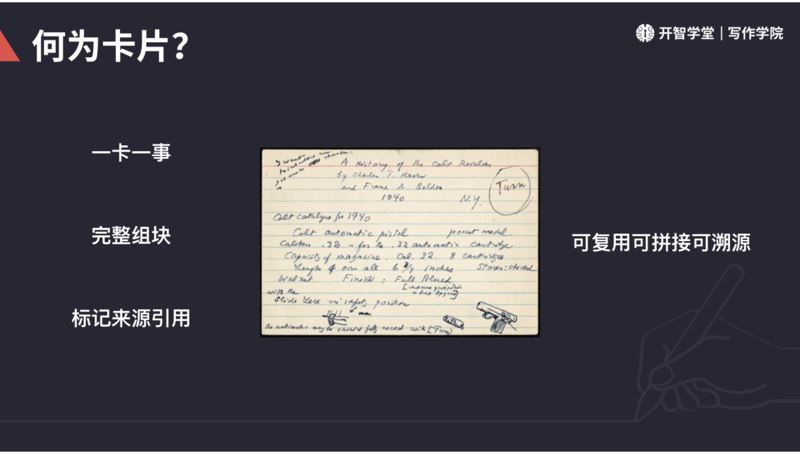 何为卡片？
开智学堂 | 写作学院
一卡一事
完整组块
标记来源引用
A History of the Colt Revolver
by Charles T. Haven
and Frank A. Belden
1940 N.Y.
Turn
Colt catalogue for 1940
Colt automatic pistol pocket model
Caliber .32 - for the .32 automatic cartridge
Capacity of magazine. Cal. 32. 8 cartridges
Length over all 6 3/4 inches Stocks: checked
Walnut. Finish: Full Blued
Slide Lock in safety position
可复用可拼接可溯源